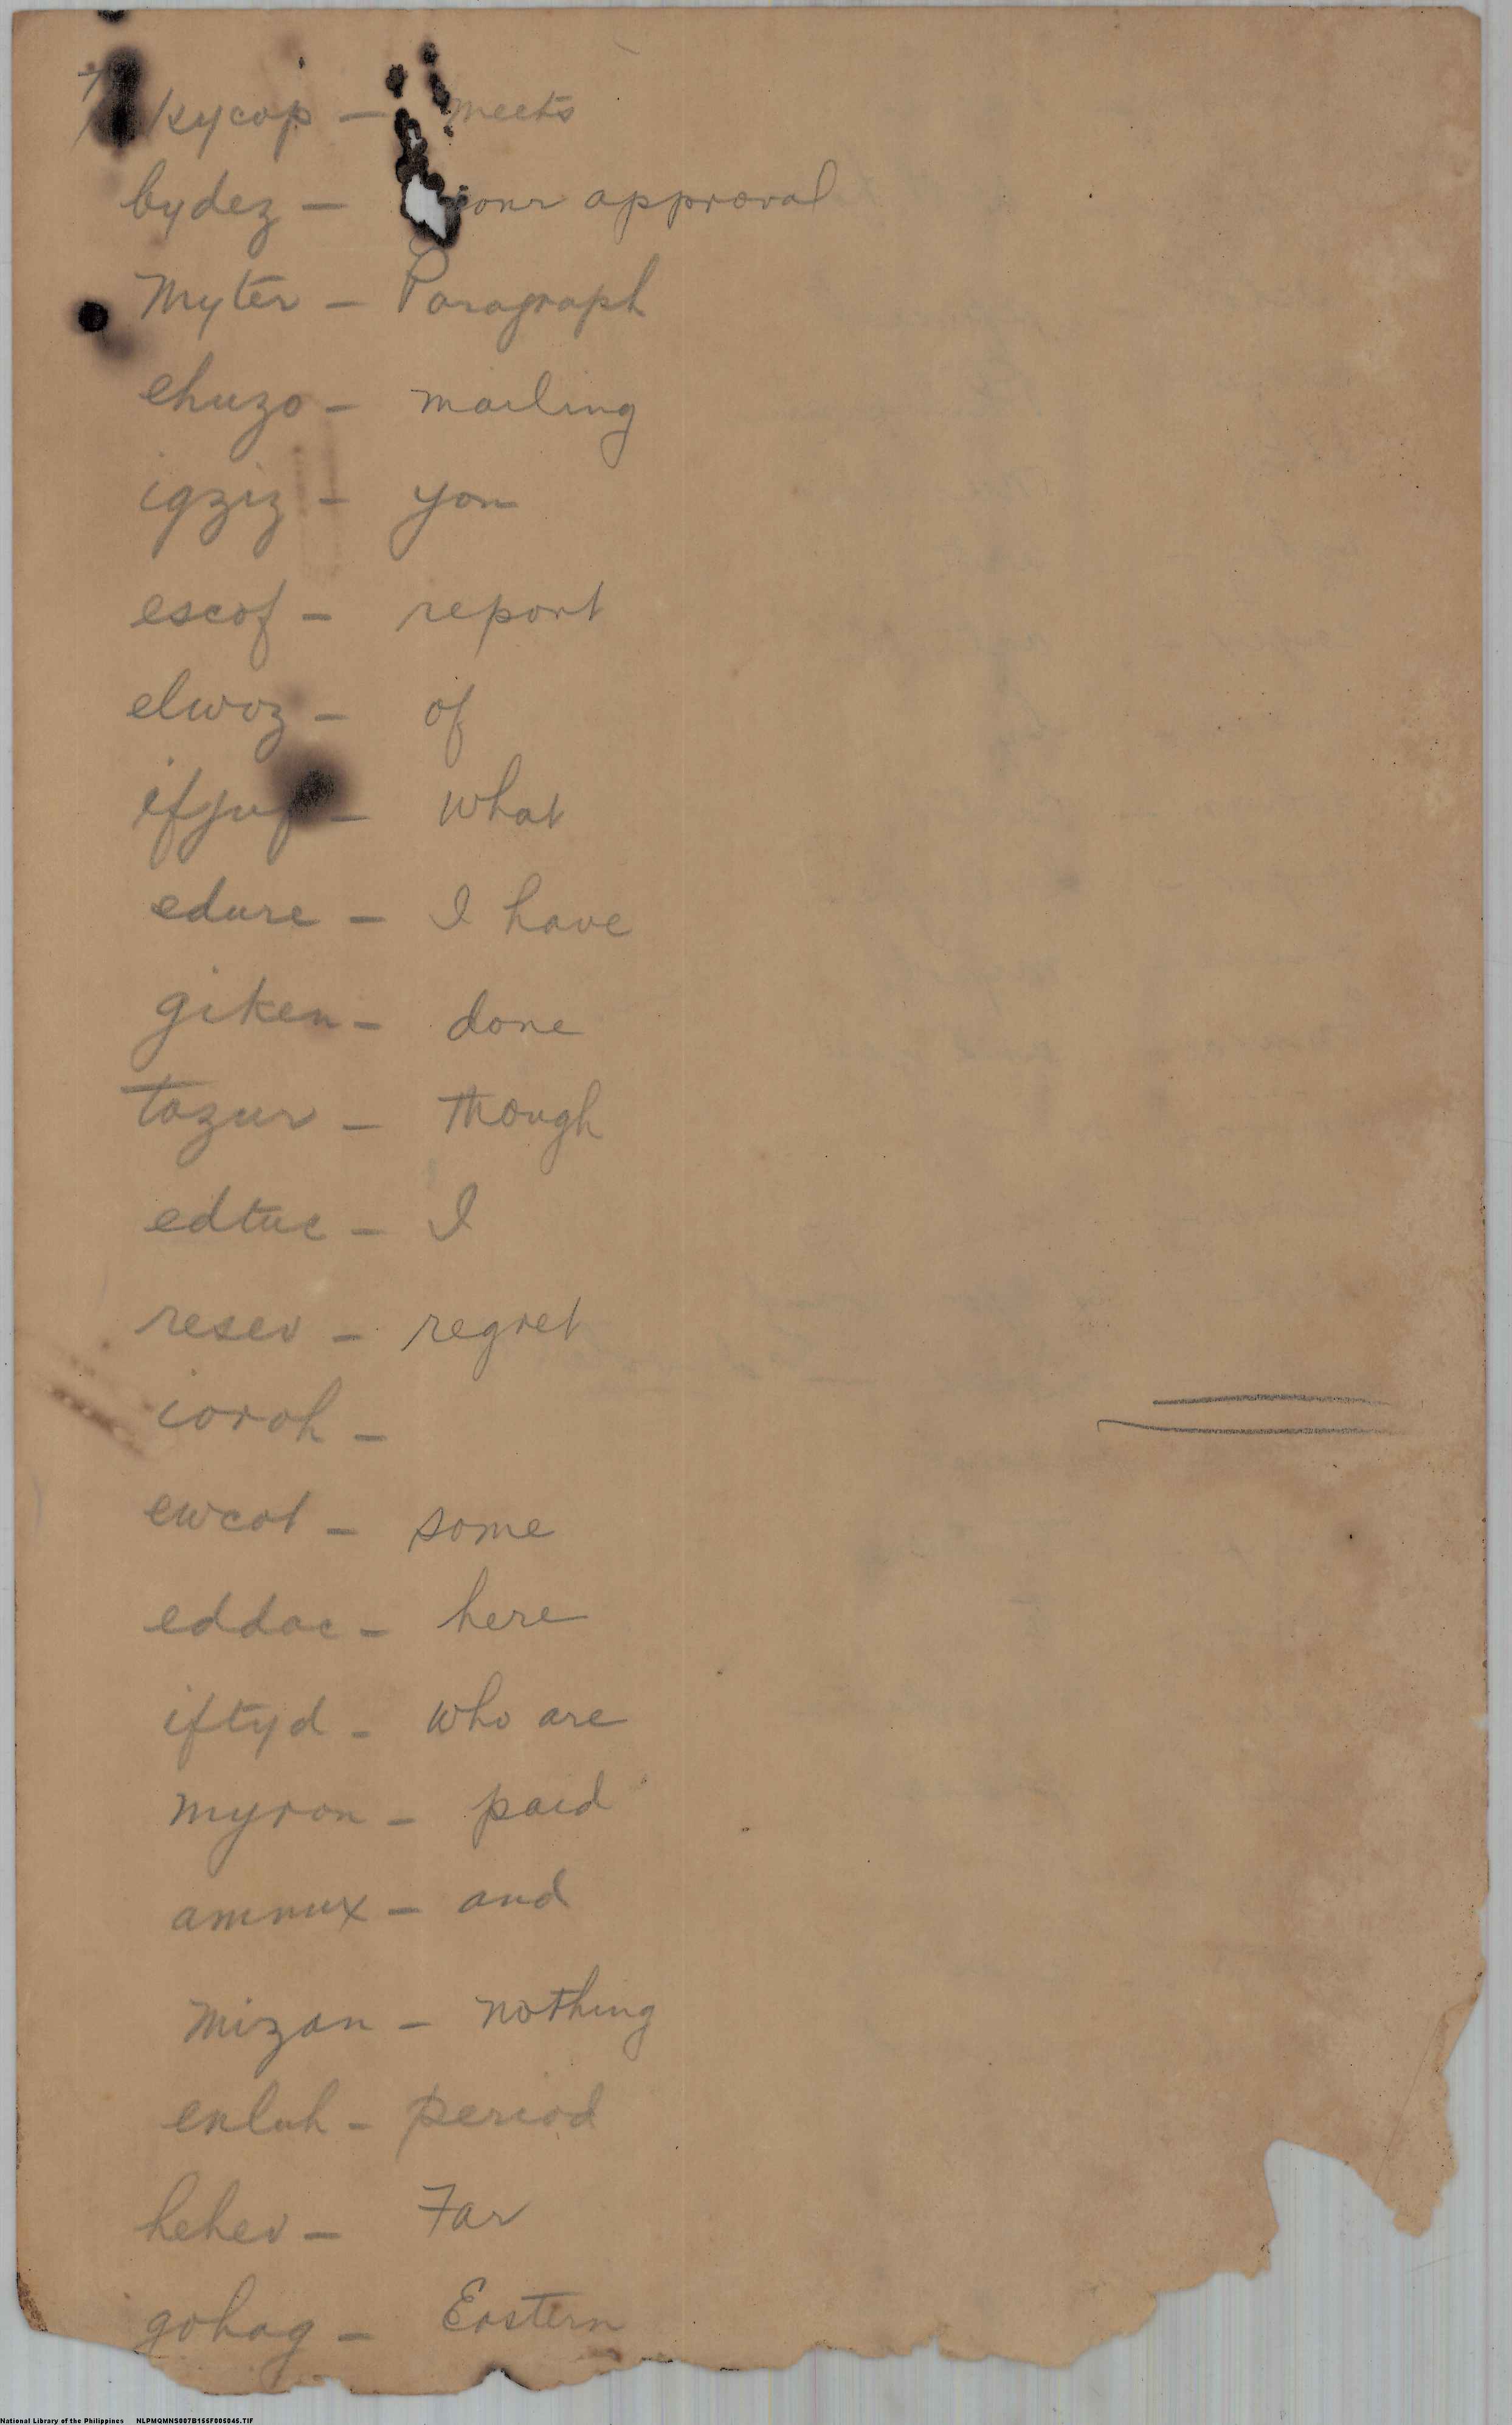 kycop - meets
bydez - your approval
Myter - Paragraph
ehuzo - mailing
igziz - you
escof - report
elwoz - of
ifjup - what
edure - I have
giken - done
tazur - though
edtuc - I
resev - regret
ioroh -
ewcot - some
eddac - here
iftyd - who are
myron - paid
amnux - and
Mizan - nothing
enluh - period
hehev - Far
gohag - Eastern
National Library of the Philippines NLPMQMNS007B155F005045.TIF